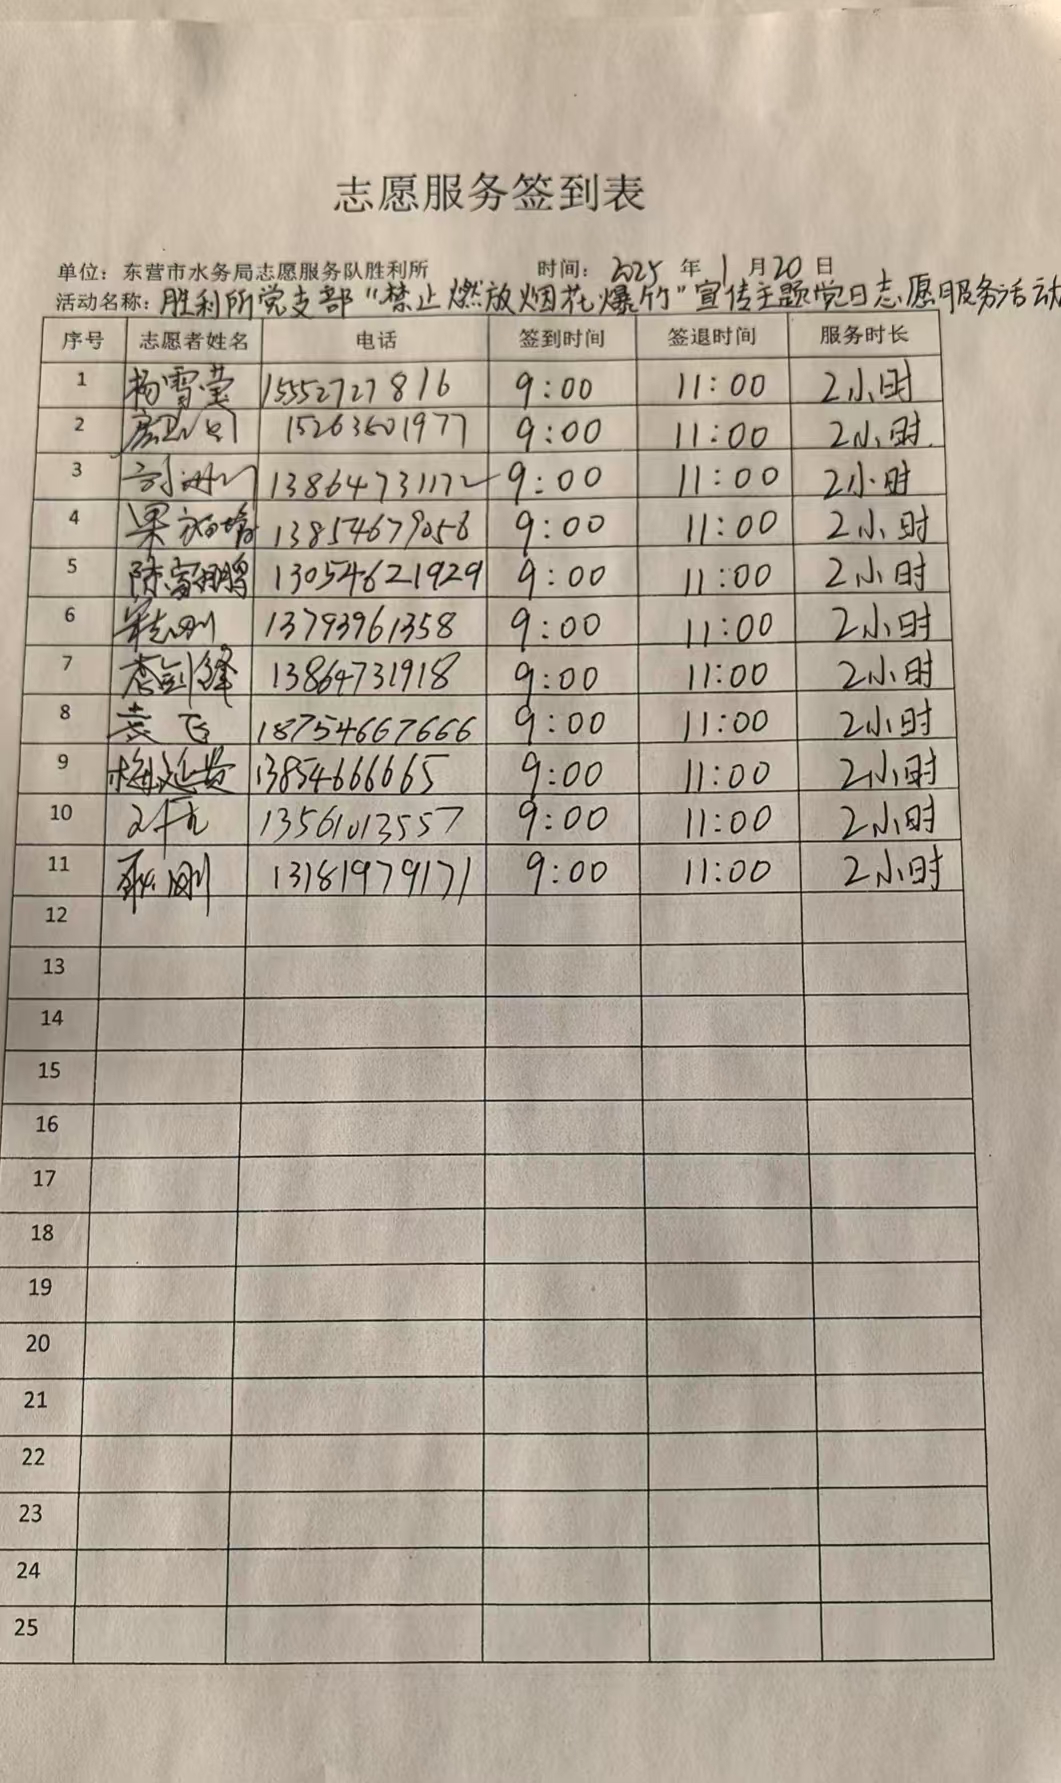 志愿服务签到表
单位：东营市水务局志愿服务队胜利所 时间：2025 年 1 月 20 日
活动名称：胜利所党支部“禁止燃放烟花爆竹”宣传主题党日志愿服务活动
序号 志愿者姓名 电话 签到时间 签退时间 服务时长
1 杨雪莹 15552727816 9:00 11:00 2小时
2 15263601977 9:00 11:00 2小时
3 13864731172 9:00 11:00 2小时
4 13854679056 9:00 11:00 2小时
5 陈富翔鹏 13054621929 9:00 11:00 2小时
6 13793961358 9:00 11:00 2小时
7 李剑锋 13864731918 9:00 11:00 2小时
8 袁飞 18754667666 9:00 11:00 2小时
9 13854666665 9:00 11:00 2小时
10 13561013557 9:00 11:00 2小时
11 刚 13181979171 9:00 11:00 2小时
12
13
14
15
16
17
18
19
20
21
22
23
24
25